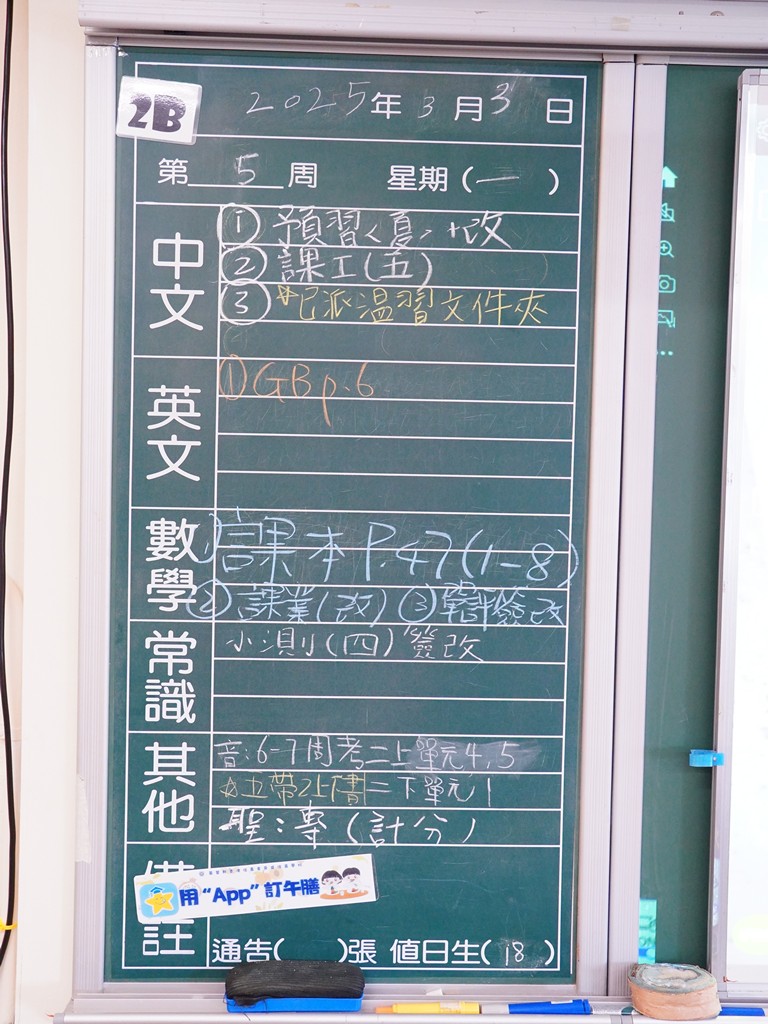 2B
2025年3月3日
第5周 星期(一)
中文
① 預習<夏>+改
② 課工(五)
③ *已派溫習文件夾
英文
① GB p.6
數學
① 課本 P.47(1-8)
② 課業(改) ③ 簽改
常識
小測(四)簽改
其他
音:6-7周考二上單元4,5
☆立帶2上書=下單元1
聖:專(計分)
用“App”訂午膳
註
通告( )張 值日生(18)